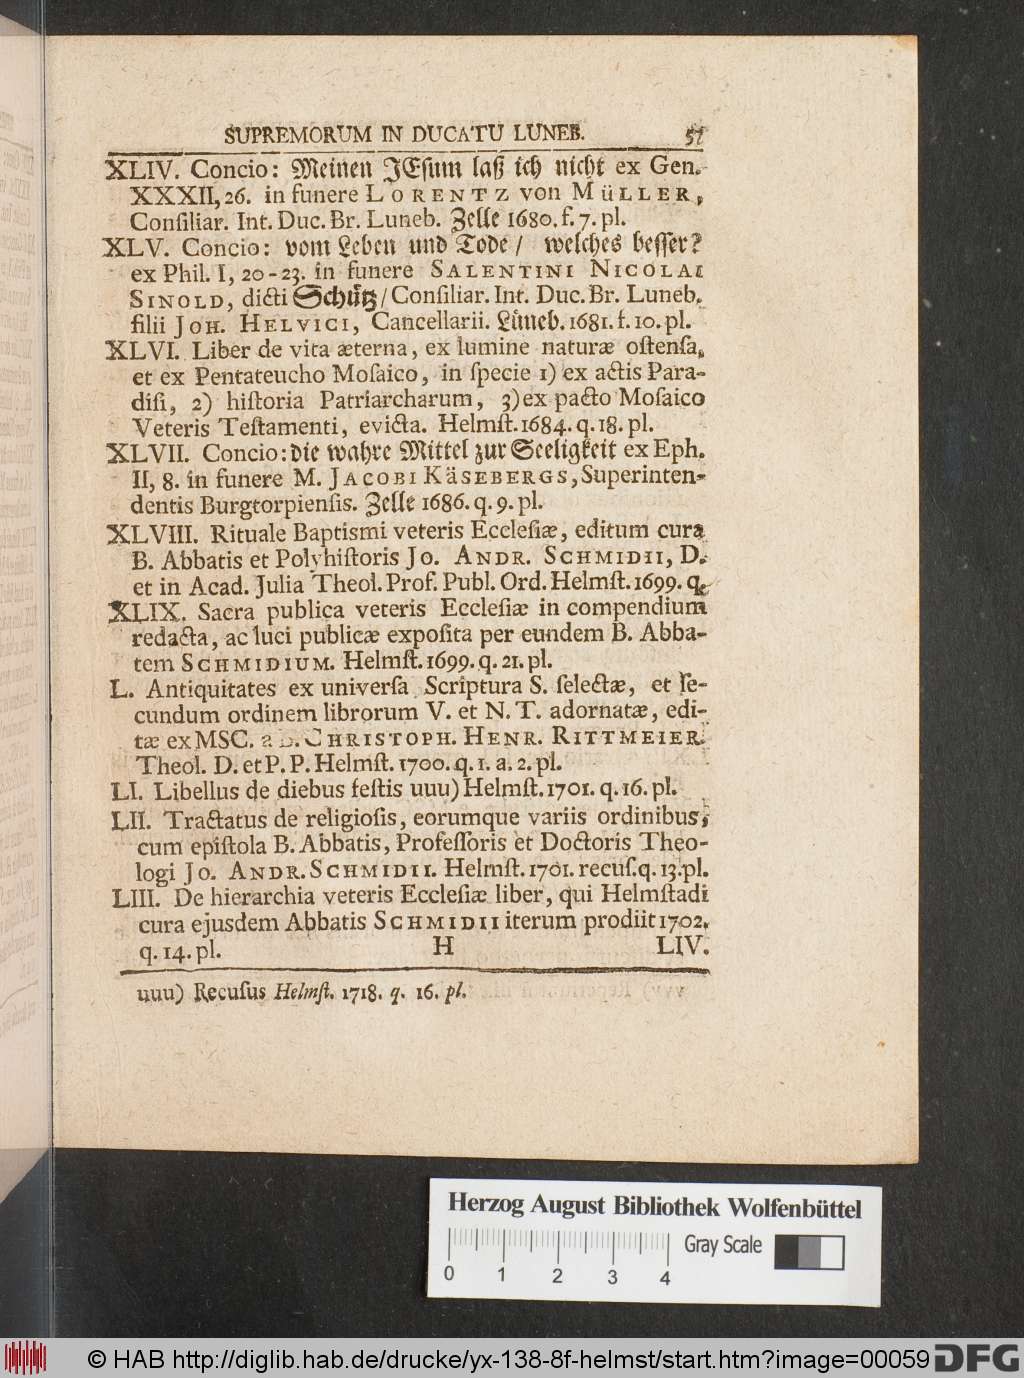 SUPREMORUM IN DUCATU LUNEB. 57
XLIV. Concio: Meinen JEſum laß ich nicht ex Gen.
XXXII, 26. in funere LORENTZ von MüLLER,
Conſiliar. Int. Duc. Br. Luneb. Zelle 1680. f. 7. pl.
XLV. Concio: vom Leben und Tode / welches beſſer?
ex Phil. I, 20-23. in funere SALENTINI NICOLAI
SINOLD, dicti Schütz / Conſiliar. Int. Duc. Br. Luneb.
filii JOH. HELVICI, Cancellarii. Lüneb. 1681. f. 10. pl.
XLVI. Liber de vita æterna, ex lumine naturæ oſtenſa,
et ex Pentateucho Moſaico, in ſpecie 1) ex actis Para-
diſi, 2) hiſtoria Patriarcharum, 3) ex pacto Moſaico
Veteris Teſtamenti, evicta. Helmſt. 1684. q. 18. pl.
XLVII. Concio: die wahre Mittel zur Seeligkeit ex Eph.
II, 8. in funere M. JACOBI KäSEBERGS, Superinten-
dentis Burgtorpienſis. Zelle 1686. q. 9. pl.
XLVIII. Rituale Baptismi veteris Eccleſiæ, editum cura
B. Abbatis et Polyhiſtoris JO. ANDR. SCHMIDII, D.
et in Acad. Julia Theol. Prof. Publ. Ord. Helmſt. 1699. q.
XLIX. Sacra publica veteris Eccleſiæ in compendium
redacta, ac luci publicæ expoſita per eundem B. Abba-
tem SCHMIDIUM. Helmſt. 1699. q. 21. pl.
L. Antiquitates ex univerſa Scriptura S. ſelectæ, et ſe-
cundum ordinem librorum V. et N. T. adornatæ, edi-
tæ ex MSC. a D. CHRISTOPH. HENR. RITTMEIER.
Theol. D. et P. P. Helmſt. 1700. q. 1. a. 2. pl.
LI. Libellus de diebus feſtis uuu) Helmſt. 1701. q. 16. pl.
LII. Tractatus de religioſis, eorumque variis ordinibus,
cum epiſtola B. Abbatis, Profeſſoris et Doctoris Theo-
logi JO. ANDR. SCHMIDII. Helmſt. 1701. recuſ. q. 13. pl.
LIII. De hierarchia veteris Eccleſiæ liber, qui Helmſtadi
cura ejusdem Abbatis SCHMIDII iterum prodiit 1702.
q. 14. pl. H LIV.
uuu) Recuſus Helmſt. 1718. q. 16. pl.
Herzog August Bibliothek Wolfenbüttel
Gray Scale
0 1 2 3 4
© HAB http://diglib.hab.de/drucke/yx-138-8f-helmst/start.htm?image=00059 DFG